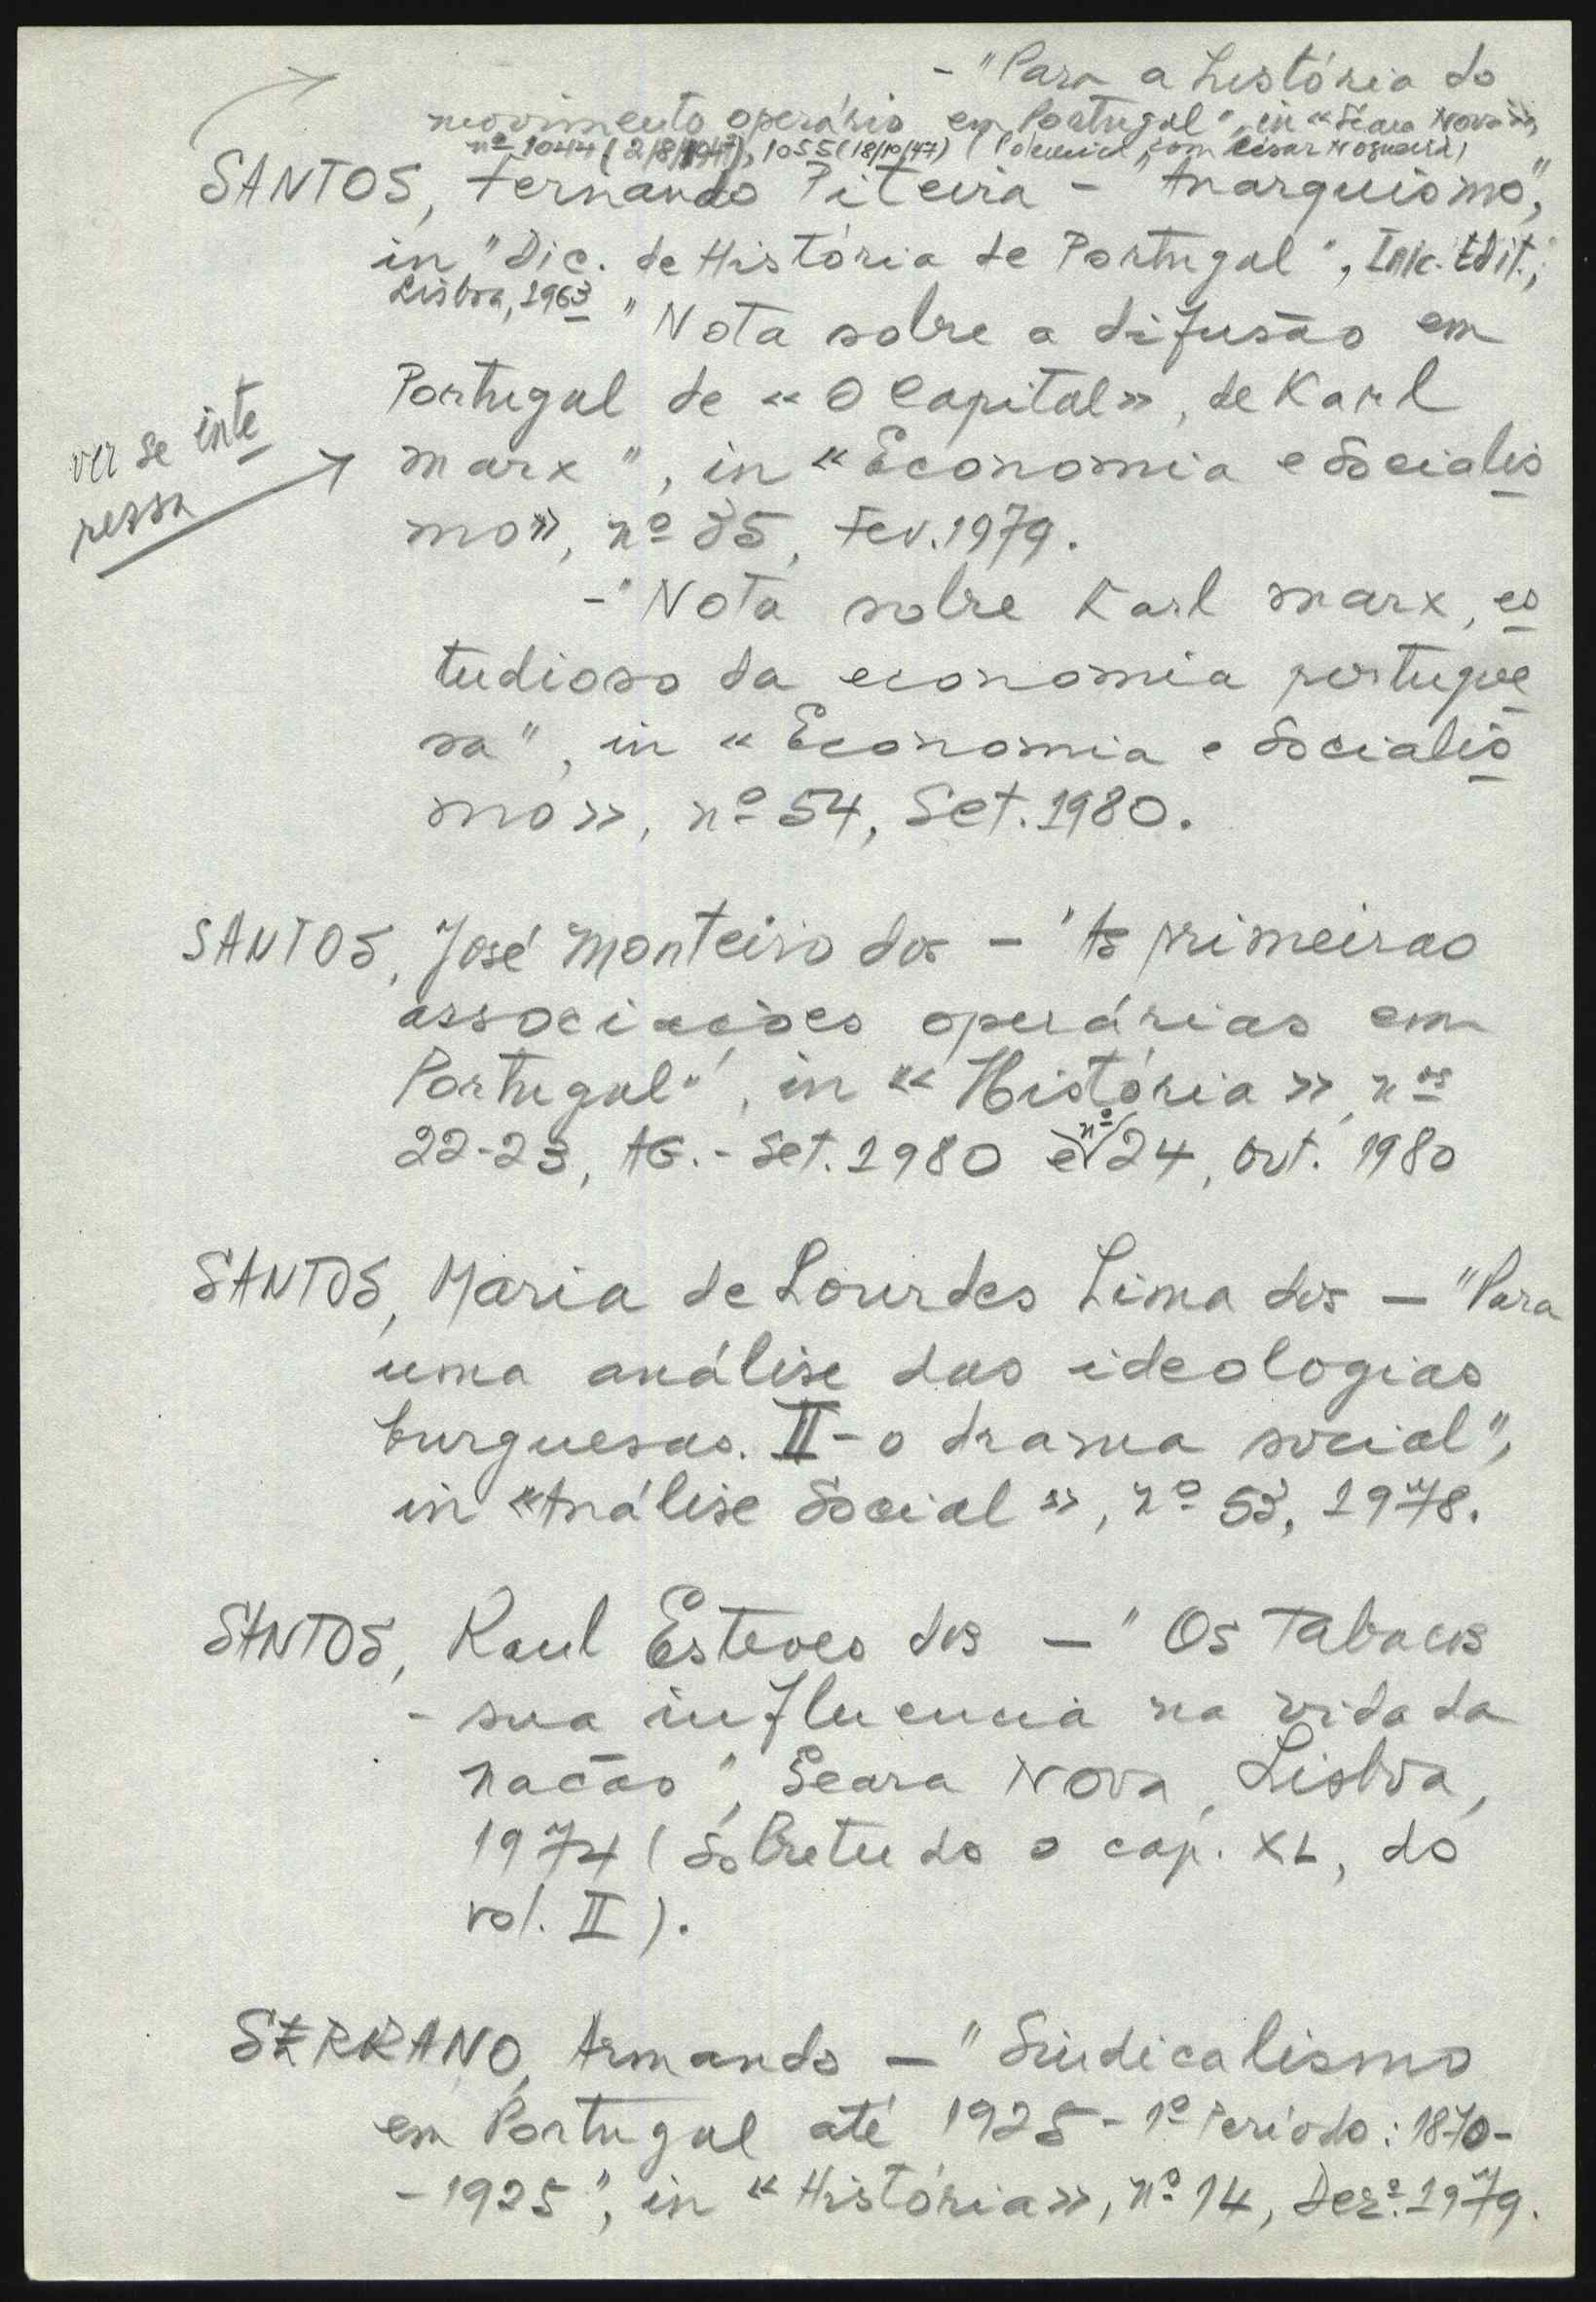 - "Para a história do
movimento operário em Portugal", in «Seara Nova»,
nº 1044 (2/8/1947), 1055 (18/10/47) (Polémica com César Nogueira)
SANTOS, Fernando Piteira - "Anarquismo",
in "Dic. de História de Portugal", Inic. Edit.,
Lisboa, 1963
"Nota sobre a difusão em
Portugal de «O Capital», de Karl
ver se inte
Marx", in «Economia e Socialis
ressa
mo», nº 35, Fev. 1979.
- "Nota sobre Karl Marx, es
tudioso da economia portugue
sa", in «Economia e Socialis
mo», nº 54, Set. 1980.
SANTOS, José Monteiro dos - "As primeiras
associações operárias em
Portugal", in «História», nos
22-23, AG. - Set. 1980 e nº 24, Out. 1980
SANTOS, Maria de Lourdes Lima dos - "Para
uma análise das ideologias
burguesas. II - o drama social",
in «Análise Social», nº 53, 1978.
SANTOS, Raul Esteves dos - "Os Tabacos
- sua influencia na vida da
nação", Seara Nova, Lisboa,
1974 (sobretudo o cap. XL, do
vol. II).
SERRANO, Armando - "Sindicalismo
em Portugal até 1925 - 1º Período: 1870-
- 1925", in «História», nº 14, Dezº. 1979.